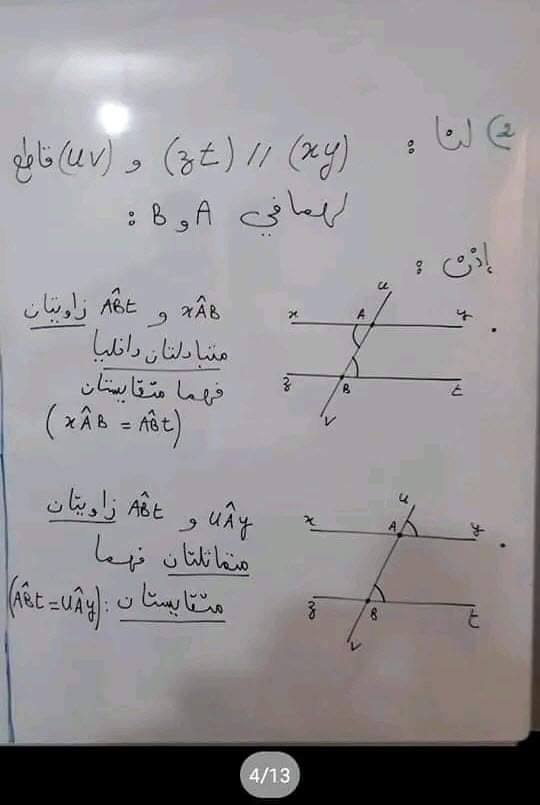 2) لنا : (xy) // (zt) و (uv) قاطع
لهما في A و B :
إذن :
xÂB و AB̂t زاويتان
متبادلتان داخليا
فهما متقايستان
(xÂB = AB̂t)
u
x A y
z B t
v
uÂy و AB̂t زاويتان
متماثلتان فهما
متقايستان : (AB̂t = uÂy)
u
x A y
z B t
v
4/13